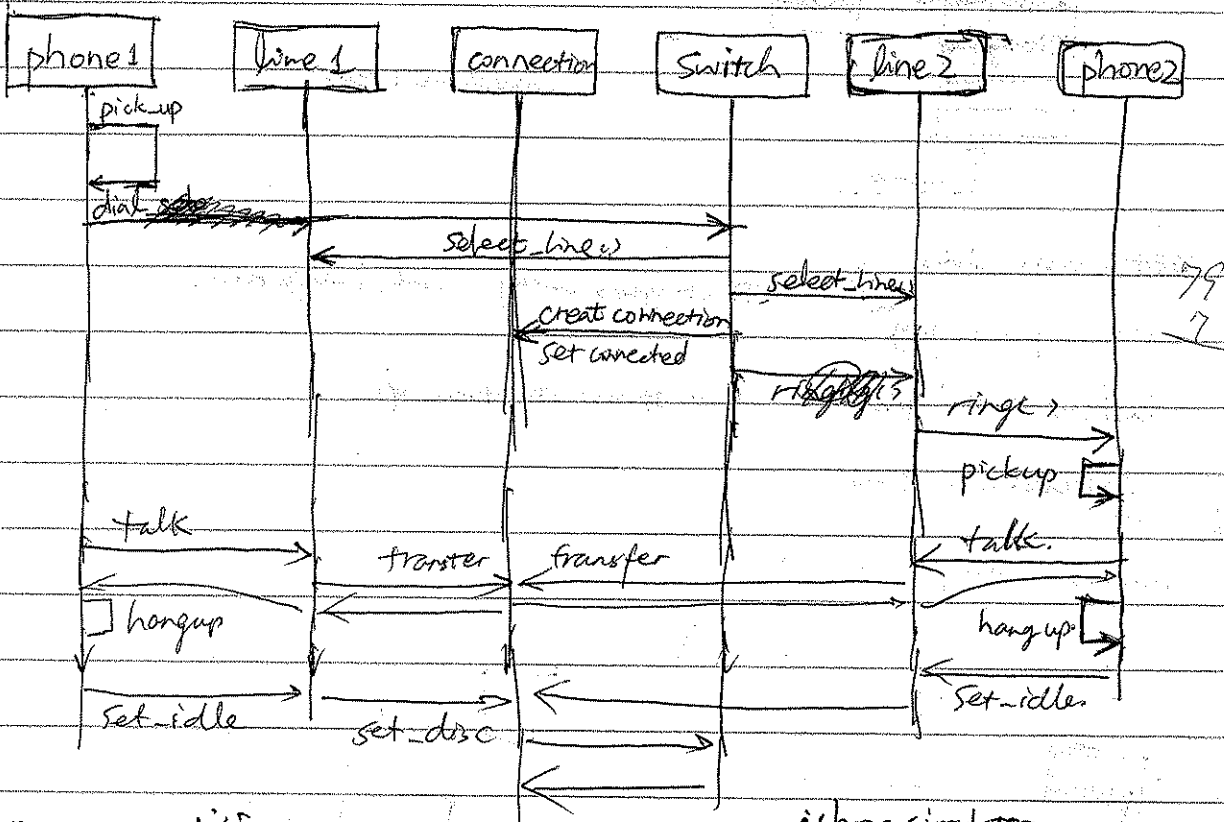 phone1 line 1 connection Switch line2 phone2
pick_up
dial
select_line()
select_line()
creat connection
set conected
ring( )
pickup
talk
talk.
transfer transfer
hangup
hang up.
set_idle
set_idle.
set_disc
79
7